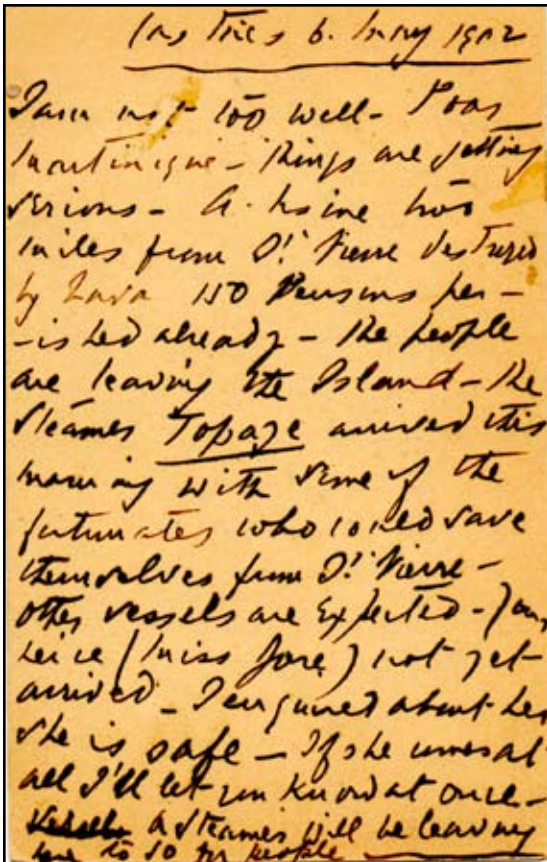 Cas Tries 6. May 1902
I am not too well - Poor
Martinique - things are getting
serious - A. Usine two
miles from St. Pierre destroyed
by Lava 150 Persons per-
-ished already - the people
are leaving the Island - the
steamer Topaze arrived this
morning with some of the
fortunates who could save
themselves from St. Pierre -
other vessels are Expected - your
neice (Miss Jore) not yet
arrived - I enquired about her
she is safe - If she comes at
all I'll let you know at once -
a steamer will be leaving
to so people